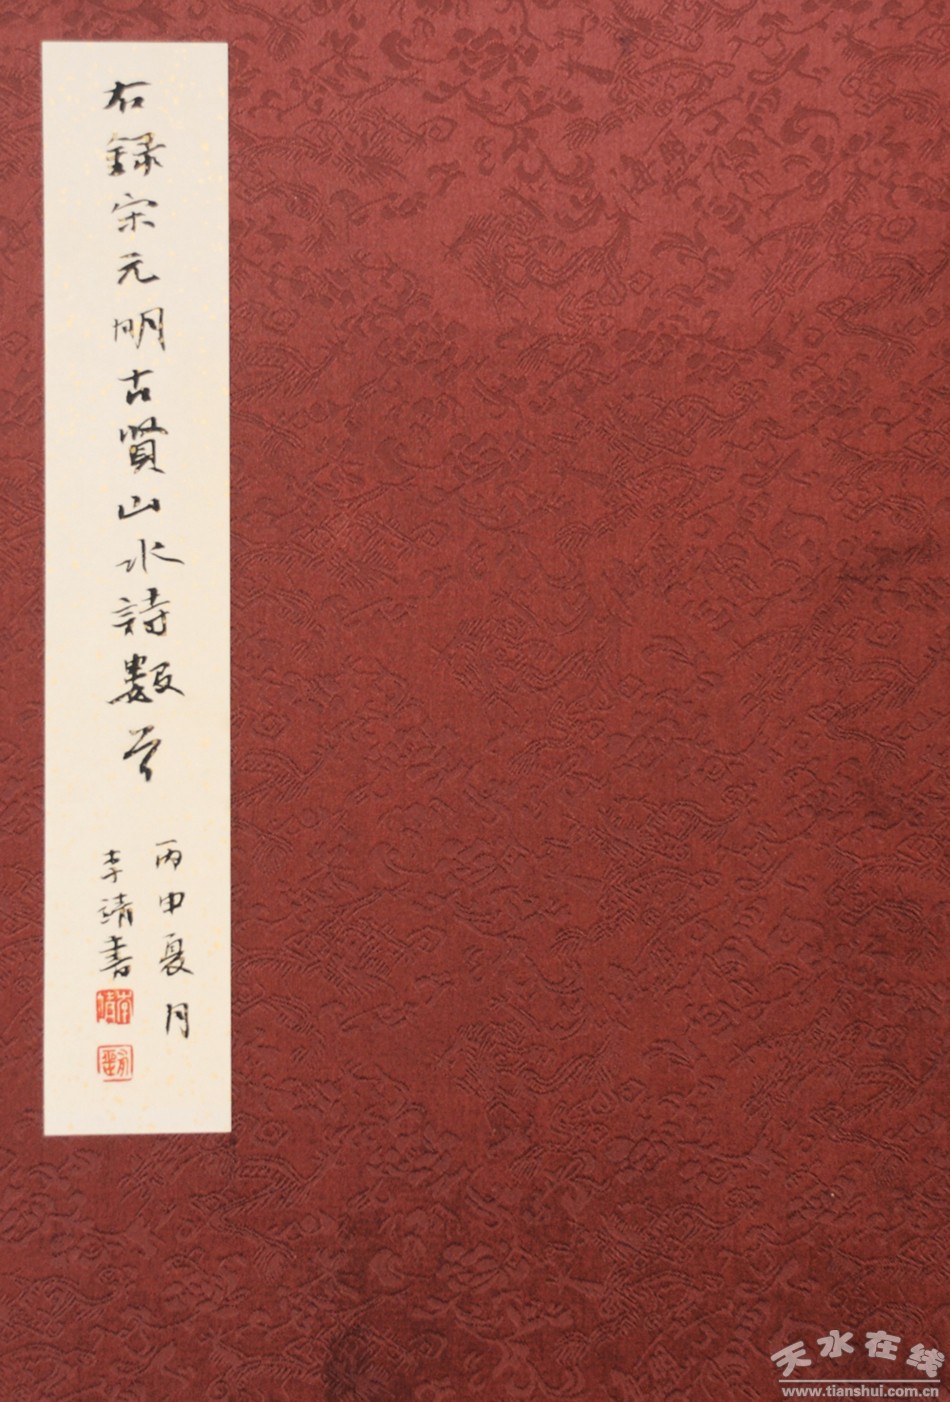 右録宋元明古賢山水詩數首
丙申夏月
李靖書
天水在线
www.tianshui.com.cn